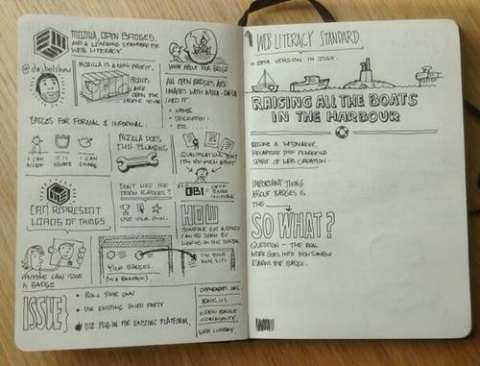 MOZILLA OPEN BADGES.
AND A LEARNING STANDARD FOR
WEB LITERACY.
@dajbelshaw
MOZILLA IS A NON PROFIT.
PROJECTS
ARE
OPEN FOR
PEOPLE TO USE
WHAT ABOUT THE BADGE
AN OPEN BADGES ARE
IMAGES WITH
• NAME
• DESCRIPTION
• ETC
BADGES FOR FORMAL & INFORMAL
I CAN
ACCEPT
I CAN
SHARE
MOZILLA DOES
THIS PLUMBING
CAN REPRESENT
LOADS OF THINGS
DON'T LIKE THE
TERM BADGES?
USE YOUR OWN.
OBI
OPEN
BADGE
HOW
SOMEONE
CAN BE SEEN BY
ANYONE CAN ISSUE
A BADGE
YOUR BADGES.
(IN A BACKPACK)
ON YOUR
OWN SITE
ISSUE
• ROLL YOUR OWN
• USE EXISTING THIRD PARTY
• USE PLUG-IN FOR EXISTING PLATFORM.
OPENBADGES.ORG
OPEN BADGE
COMMUNITY
WEB LITERACY
WEB LITERACY STANDARD.
• BETA VERSION IN JULY
RAISING ALL THE BOATS
IN THE HARBOUR
BECOME A WEBMAKER,
RECAPTURE THE PIONEERING
SPIRIT OF WEB CREATION
IMPORTANT THING
ABOUT BADGES IS
THE
SO WHAT?
QUESTION - THE REAL
WORK GOES INTO HOW SOMEONE
EARNS THE BADGE.